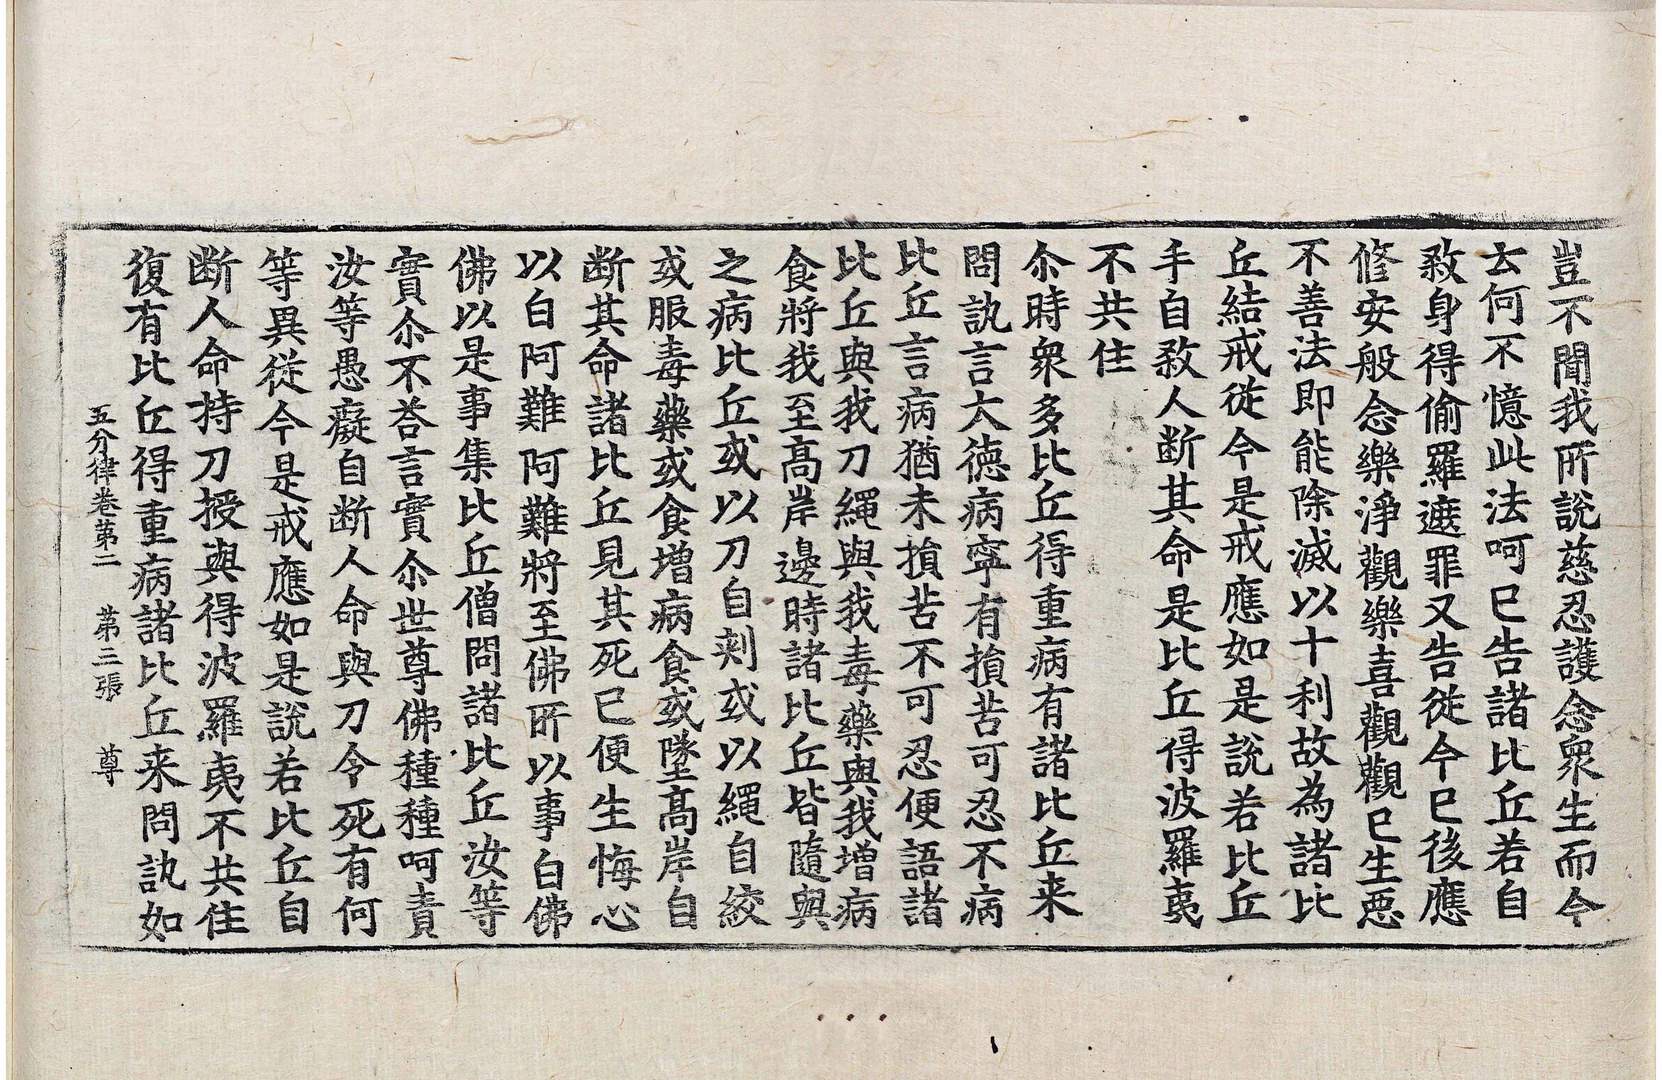 豈不聞我所說慈忍護念衆生而今
去何不憶此法呵已告諸比丘若自
煞身得偷羅遮罪又告從今已後應
修安般念樂淨觀樂喜觀觀已生惡
不善法即能除滅以十利故為諸比
丘結戒從今是戒應如是說若比丘
手自煞人断其命是比丘得波羅夷
不共住
尒時衆多比丘得重病有諸比丘来
問訊言大德病寧有損苦可忍不病
比丘言病猶未損苦不可忍便語諸
比丘與我刀繩與我毒藥與我增病
食將我至高岸邊時諸比丘皆隨與
之病比丘或以刀自刾或以繩自絞
或服毒藥或食增病食或墜高岸自
断其命諸比丘見其死已便生悔心
以白阿難阿難將至佛所以事白佛
佛以是事集比丘僧問諸比丘汝等
實尒不荅言實尒世尊佛種種呵責
汝等愚癡自断人命與刀令死有何
等異從今是戒應如是說若比丘自
断人命持刀授與得波羅夷不共住
復有比丘得重病諸比丘来問訊如
五分律卷第二 第三張 尊